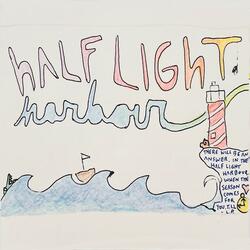 HALF LIGHT
harbour
THERE WILL BE AN
ANSWER, IN THE
HALF LIGHT
HARBOUR,
WHEN THE
SEASON
COMES
FOR
YOU, TILL